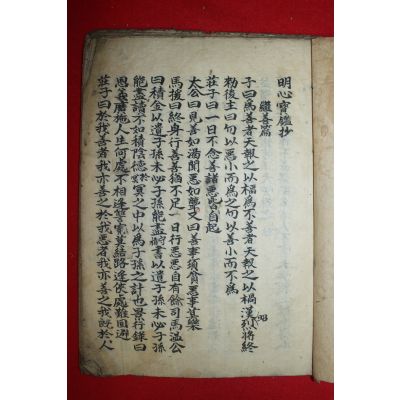 明心寶鑑抄
繼善篇
子曰爲善者天報之以福爲不善者天報之以禍漢烈將終
勑後主曰勿以惡小而爲之勿以善小而不爲
莊子曰一日不念善諸惡皆自起
太公曰見善如渴聞惡如聾又曰善事須貪惡事莫樂
馬援曰終身行善善猶不足一日行惡惡自有餘司馬溫公
曰積金以遺子孫未必子孫能盡書以遺子孫未必子孫
能盡讀不如積陰德於冥冥之中以爲子孫之計也景行錄曰
恩義廣施人生何處不相逢讐冤莫結路逢狹處難回避
莊子曰於我善者我亦善之於我惡者我亦善之我旣於人